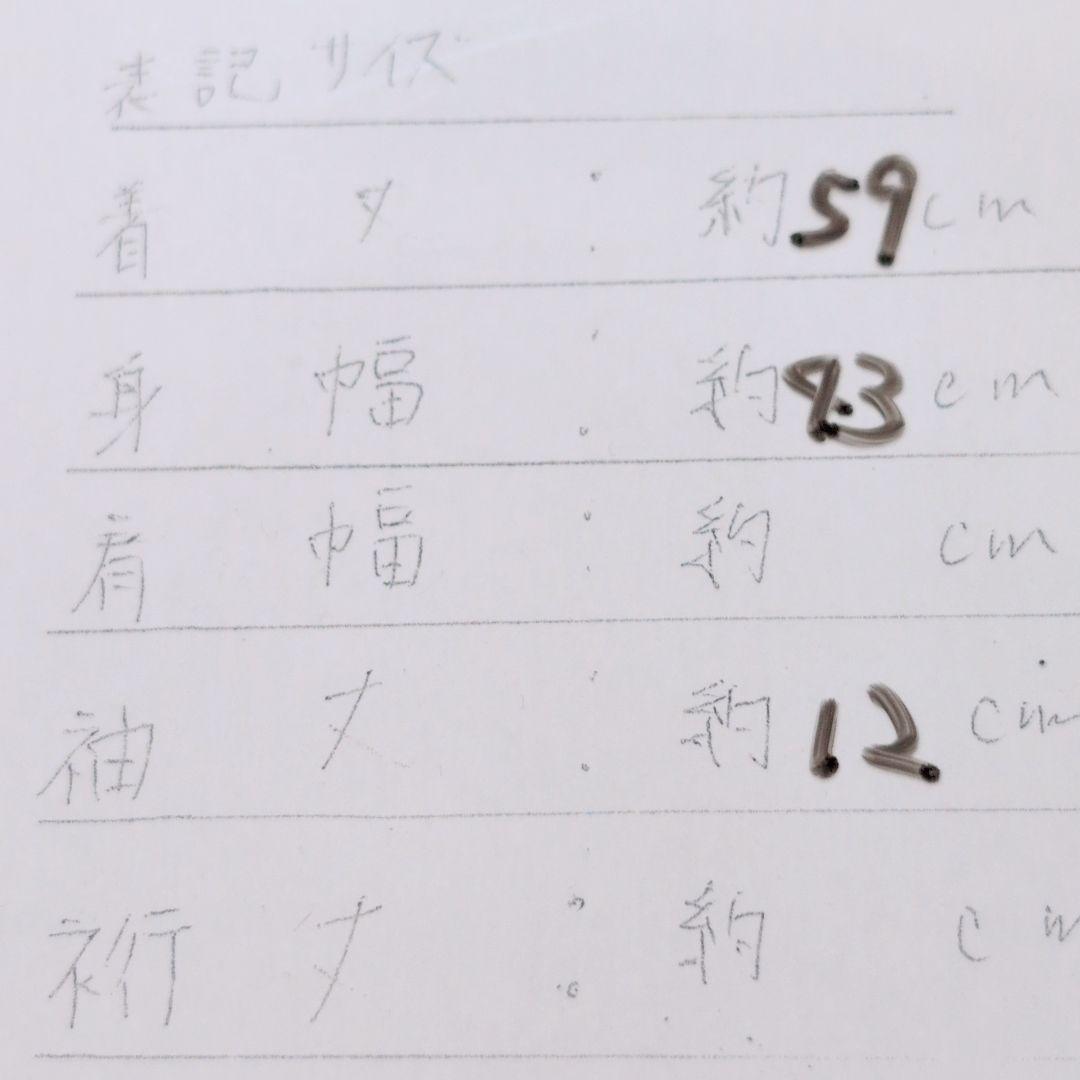 表記サイズ
着丈:約59cm
身幅:約 cm
肩幅:約 cm
袖丈:約12cm
裄丈:約 cm